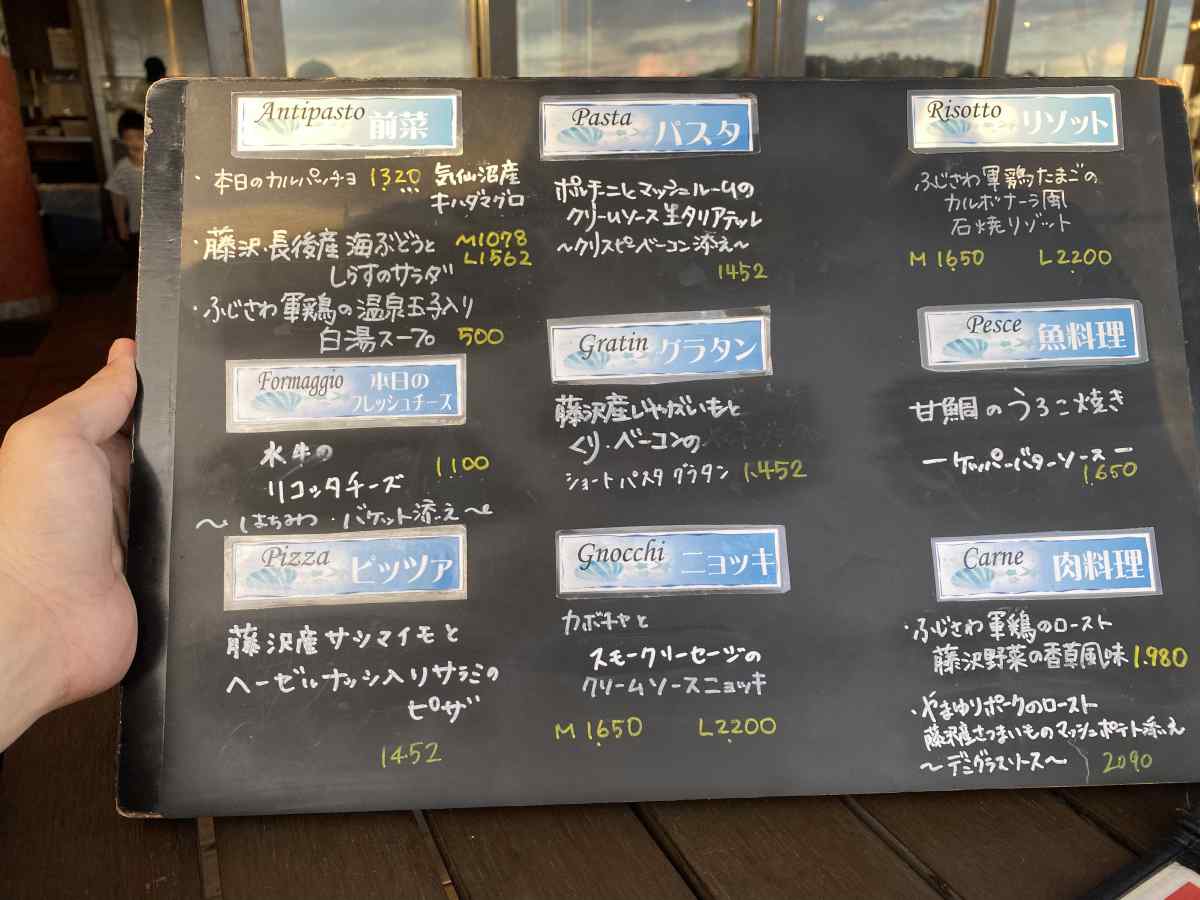 Antipasto 前菜
・本日のカルパッチョ 1320 気仙沼産
キハダマグロ
・藤沢・長後産 海ぶどうと M1078
L1562
しらすのサラダ
・ふじさわ軍鶏の温泉玉子入り
白湯スープ 500
Formaggio 本日の
フレッシュチーズ
水牛の
リコッタチーズ 1100
〜はちみつ・バケット添え〜
Pizza ピッツァ
藤沢産サツマイモと
ヘーゼルナッツ入りサラミの
ピザ
1452
Pasta パスタ
ポルチーニとマッシュルームの
クリームソース生タリアテッレ
〜クリスピーベーコン添え〜
1452
Gratin グラタン
藤沢産じゃがいもと
くり・ベーコンの
ショートパスタグラタン 1.452
Gnocchi ニョッキ
カボチャと
スモークソーセージの
クリームソースニョッキ
M 1650 L2200
Risotto リゾット
ふじさわ軍鶏たまごの
カルボナーラ風
石焼リゾット
M 1650 L2200
Pesce 魚料理
甘鯛のうろこ焼き
ーケッパーバターソースー
1.650
Carne 肉料理
・ふじさわ軍鶏のロースト
藤沢野菜の香草風味 1.980
・やまゆりポークのロースト
藤沢産さつまいものマッシュポテト添え
〜デミグラスソース〜 2090